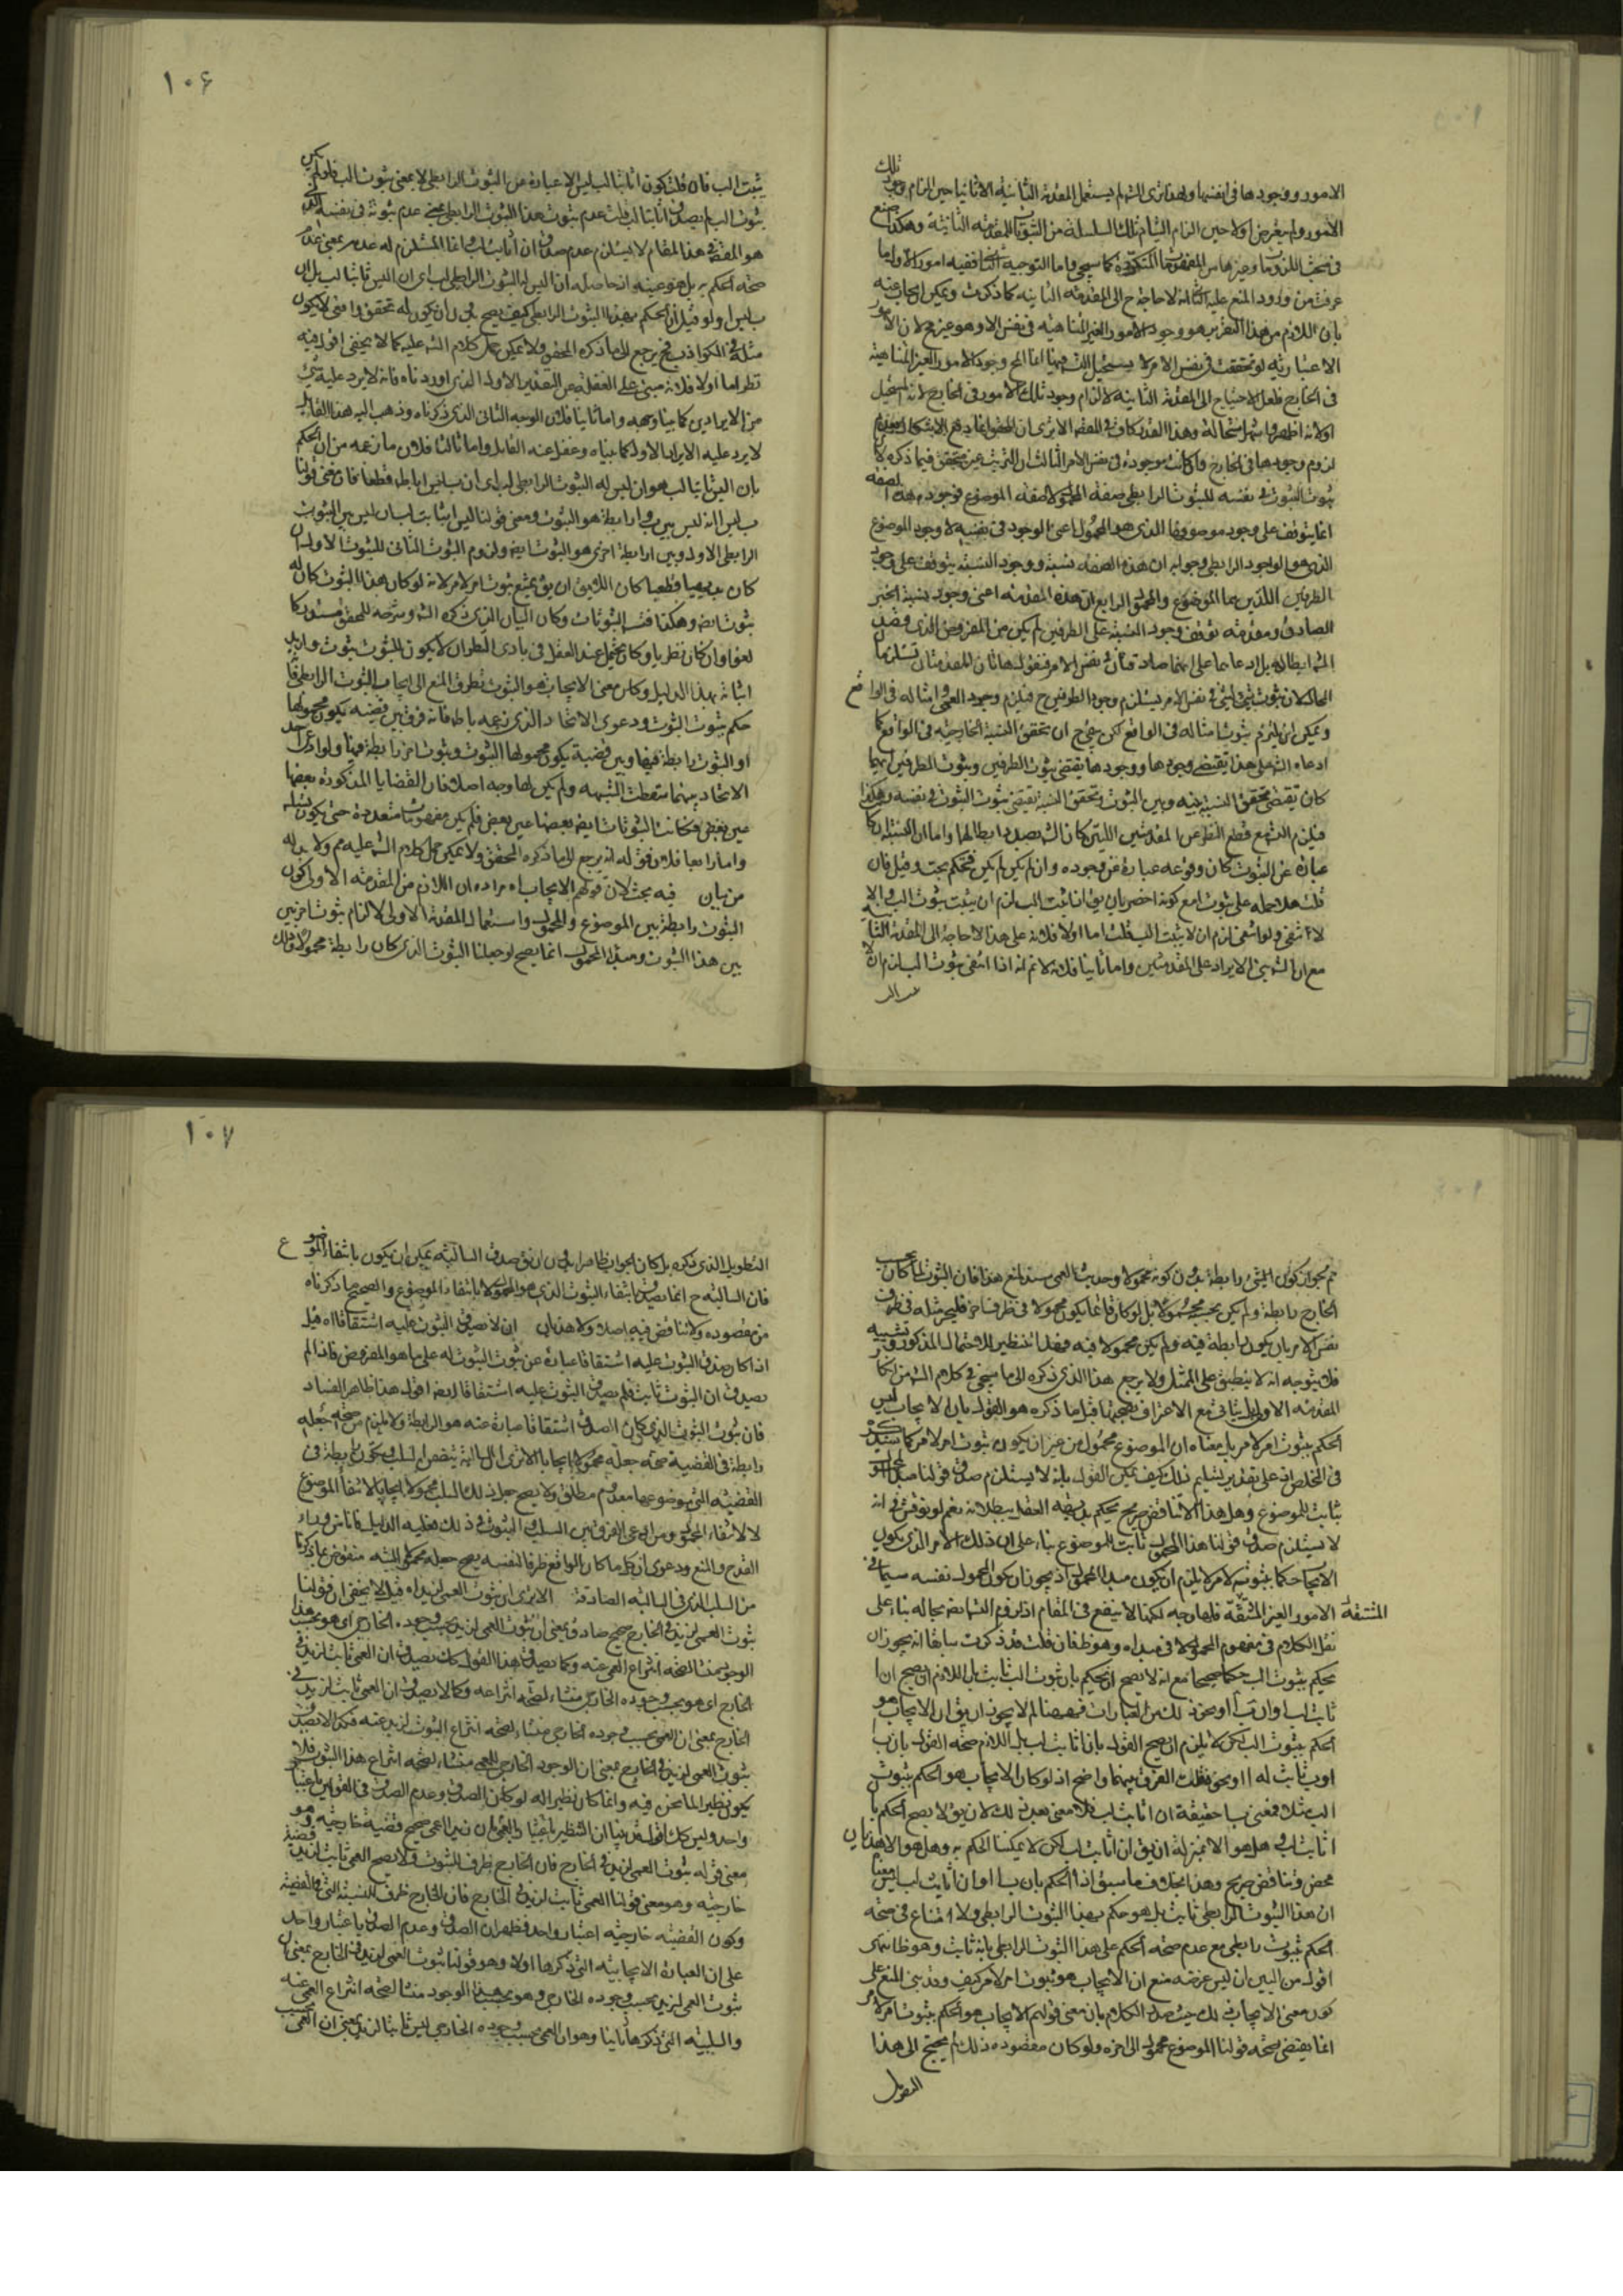 الامور ووجودها فى انفسها ولهذا ترى الشه لم يستعمل المقدمة الثانية الا ثانيا حين الزام وجود تلك
الامور ولم يتعرض اولا حين الزام التيام تلك السلسلة من الثبوتات للمقدمة الثانية وهكذا صنع
عرفت من ورود المنع عليه الثالثة لا حاجة ح الى المقدمة الثانية كما ذكرت ويمكن الجواب عنه
بان اللازم من هذا التقرير هو وجود الامور الغير المتناهية فى نفس الامر وهو غير مح لان الامور
الاعتبارية لو تحققت فى نفس الامر لا يستحيل التس فيها انما المح وجود الامور الغير المتناهية
فى الخارج فلعل الاحتياج الى المقدمة الثانية لالزام وجود تلك الامور فى الخارج لانه المستحيل
ثبوت الثبوت فى نفسه للثبوت الرابطى صفة المحمول لا صفة الموضوع فوجود هذه الصفة
انما يتوقف على وجود موصوفها الذى هو المحمول اعنى الوجود فى نفسه لا وجود الموضوع
الذى هو الوجود الرابطى وجوابه ان هذه الصفة نسبة ووجود النسبة يتوقف على وجود
الطرفين اللذين هما الموضوع والمحمول الرابع ان هذه المقدمة اعنى وجود نسبة الخبر
الصادق ومقدمة توقف وجود النسبة على الطرفين لم يكن من المفروض الذى قصد
ويمكن ان يلتزم ثبوت امثاله فى الواقع لكن يتجه ح ان تحقق النسبة الخارجية فى الواقع كما
ادعاه الشه على هذا يقتضى وجودها ووجودها يقتضى ثبوت الطرفين وثبوت الطرفين ايهما
كان يقتضى تحقق النسبة بينه وبين الثبوت وتحقق النسبة يقتضى ثبوت الثبوت فى نفسه وهكذا
فيلزم التس مع قطع النظر عن المقدمتين اللتين كان الشه بصدد ابطالها واما ان النسبة لما كان
عبارة عن الثبوت كان وقوعه عبارة عن وجوده وان لم يكن لم يكن فتحكم بحت وقيل فان
قلت هلا حمله على ثبوت امع كونه اخصر بان يق اذا ثبت الب لزم ان يثبت ثبوت الب والا
لا انتفى ولو انتفى لزم ان لا يثبت الب قلت اما اولا فلانه على هذا لا حاجة الى المقدمة الثانية
مع ان الشه بنى الايراد على المقدمتين واما ثانيا فلانه لا نم انه اذا انتفى ثبوت الب لزم ان لا
١٠۶
يثبت الب فان قلت كون ا ثابتا لب ليس الا عبارة عن الثبوت الرابطى لا بمعنى ثبوت الب فلو لم يكن
ثبوت الب لم يصدق ا ثابتا لب قلت عدم ثبوت هذا الثبوت الرابطى بمعنى عدم ثبوته فى نفسه الذى
هو المقصود فى هذا المقام لا يستلزم عدم صدق ان ا ثابت لب انما المستلزم له عدمه بمعنى عدم
صحة الحكم به بل هو عينه
نظر اما اولا فلانه مبنى على الغفلة عن التقدير الاول الذى اوردناه فانه لا يرد عليه شئ
من الايرادين كما بينا وجهه واما ثانيا فلان الوجه الثانى الذى ذكرناه وذهب اليه هذا القائل
لا يرد عليه الايراد الاول كما بيناه وغفل عنه القائل واما ثالثا فلان ما زعمه من ان الحكم
بان اليس ثابتا لب هو ان ليس له الثبوت الرابطى لب اى ان ب ليس ا باطل قطعا فان معنى قولنا
ب ليس ا انه ليس بين ب وا رابطة هو الثبوت ومعنى قولنا ليس ا ثابت لب ان ليس بين الثبوت
الرابطى الاول وبين ا رابطة اخرى هو الثبوت ايضا ولزوم الثبوت الثانى للثبوت الاول ان
كان بديهيا قطعيا كان اللايق ان يق يمتنع ثبوت امر لامر لانه لو كان لهذا الثبوت كان له
ثبوت ايضا وهكذا فتس الثبوتات وكان البيان الذى ذكره الشه وشرحه المحقق مستدركا
حكم بثبوت الثبوت ودعوى الاتحاد الذى زعمه باطل فانه فرق بين قضية يكون محمولها ا
او الثبوت رابطة فيها وبين قضية يكون محمولها الثبوت وثبوت اخر رابطة فيها ولو ادعى احد
الاتحاد بينهما سقطت الشبهة ولم يكن لها وجه اصلا فان القضايا المذكورة بعضها
عين بعض فكانت الثبوتات ايضا بعضها عين بعض فلم يكن مفهومات متعددة حتى يكون تسلسله
واما رابعا فلان قوله انه يرجع الى ما ذكره المحقق ولا يمكن حمل كلام الشه عليه مم ولا بد له
من بيان فيه بحث لان قولهم الايجاب اه مراده ان اللازم من المقدمة الاولى كون
الثبوت رابطة بين الموضوع والمحمول واستعمال المقدمة الاولى لالزام ثبوت اخر بين
بين هذا الثبوت ومبدأ المحمول انما يصح لو جعلنا الثبوت الذى كان رابطة محمولا وذلك
مم لجواز كون الشئ رابطة بدون كونه محمولا وحديث العمى سند لمنع هذا فان الثبوت لما كان بحسب
الخارج رابطة ولم يكن بحسبه محمولا بل لو كان فانما يكون محمولا فى ظرف اخر فليجز مثله فى ظرف
نفس الامر بان يكون رابطة فيه ولم يكن محمولا فيه فهذا تنظير للاحتمال المذكور وتشبيه
فلا يتوجه انه لا ينطبق على الممثل ولا يرجع هذا الذى ذكره الى ما سيجئ فى كلام الشه من انكار
المقدمة الاولى
الحكم بثبوت امر لامر بل معناه ان الموضوع محمول من غير ان يكون ثبوت امر لامر كما سنذكر
فى المخلص انه على تقدير تسليم ذلك كيف يمكن القول بانه لا يستلزم صدق قولنا مبدأ المحمول
ثابت للموضوع وهل هذا الا تناقض صريح يحكم بديهة العقل ببطلانه نعم لو نوقش فى انه
لا يستلزم صدق قولنا هذا المحمول ثابت للموضوع بناء على ان ذلك الامر الذى يكون
الايجاب حكما بثبوته لامر لا يلزم ان يكون مبدأ المحمول اذ يجوز ان يكون المحمول نفسه سيما فى
الامور الغير المشتقة فلها وجه لكنها لا ينفع فى المقام اذ لزوم التس ايضا بحاله بناء على
المشتقة
نقل الكلام فى مفهوم المحمول لا فى مبدأه وهو ظ فان قلت قد ذكرت سابقا انه يجوز ان
يحكم بثبوت الب حكما صحيحا مع انه لا يصح ان يحكم بان ثبوت الب ثابت بل اللازم ان يصح ان ا
ثابت لب او ان ب ا او نحو ذلك من العبارات فههنا لم لا يجوز ان يق ان الايجاب هو
الحكم بثبوت الب لكن لا يلزم ان يصح القول بان ا ثابت لب بل اللازم صحة القول بان ب ا
او ب ثابت له ا او نحو ذلك قلت الفرق بينهما واضح اذ لو كان الايجاب هو الحكم بثبوت
الب مثلا فمعنى ب ا حقيقة ان ا ثابت لب فلا معنى بعد ذلك لان يق لا يصح الحكم بان
ا ثابت لب وهل هو الا بمنزلة ان يق ان ا ثابت لب لكن لا يمكننا الحكم به وهل هو الا هذيان
محض وتناقض صريح وهذا بخلاف ما سبق اذ الحكم بان ب ا او ان ا ثابت لب ليس معناه
ان هذا الثبوت الرابطى ثابت بل هو حكم بهذا الثبوت الرابطى ولا امتناع فى صحة
الحكم بثبوت رابطى مع عدم صحة الحكم على هذا الثبوت الرابطى بانه ثابت وهو ظاهر
اقول من البين ان ليس غرضه منع ان الايجاب هو ثبوت امر لامر كيف وقد بنى المنع على
كون معنى الايجاب ذلك حيث صدر الكلام بان معنى قولهم الايجاب هو الحكم بثبوت امر لامر
انما يقتضى صحة قولنا الموضوع محمول الى اخره ولو كان مقصوده ذلك لم يحتج الى هذا
التطويل
١٠٧
التطويل الذى ذكره بل كان الجواب ظاهرا بان يق صدق السالبة يمكن ان يكون بانتفاء الموضوع
فان السالبة ح انما يصدق بانتفاء الثبوت الذى هو المحمول لا بانتفاء الموضوع والصحيح ما ذكرناه
من مقصوده ولا تناقض فيه اصلا ولا هذيان ان لا يصدق الثبوت عليه اشتقاقا اه قيل
اذا كان صدق الثبوت عليه اشتقاقا عبارة عن ثبوت الثبوت له على ما هو المفروض فاذا لم
يصدق ان الثبوت ثابت فلم يصدق الثبوت عليه اشتقاقا ايضا اقول هذا ظاهر الفساد
فان ثبوت الثبوت الذى كان الصدق اشتقاقا عبارة عنه هو الرابطة ولا يلزم من صحة جعله
رابطة فى القضية صحة جعله محمولا ايجابا الا ترى ان السالبة يتضمن السلب ويكون رابطة فى
القضية التى موضوعها معدوم مطلق ولا يصح جعل ذلك السلب محمولا ايجابا لانتفاء الموضوع
لا لانتفاء المحمول ومن ادعى الفرق بين السلب والثبوت فى ذلك فعليه الدليل فانا من وراء
القدح والمنع ودعوى ان كل ما كان الواقع ظرفا لنفسه يصح جعله محمولا البتة منقوض بما ذكرنا
من السلب الذى فى السالبة الصادقة الا ترى ان ثبوت العمى لزيد اه قيل لا يخفى ان قولنا
ثبوت العمى لزيد فى الخارج صحيح صادق بمعنى ان ثبوت العمى لزيد بحسب وجوده الخارجى اى هو بحسب هذا
الوجود منشأ لصحة انتزاع العمى عنه وكما يصدق هذا القول كك يصدق ان العمى ثابت لزيد فى
الخارج اى هو بحسب وجوده الخارجى منشأ لصحة انتزاعه وكما لا يصدق ان العمى ثابت لزيد فى
الخارج بمعنى ان العمى بحسب وجوده الخارجى منشأ لصحة انتزاع الثبوت لزيد عنه فكك لا يصدق
ثبوت العمى لزيد فى الخارج بمعنى ان الوجود الخارجى للعمى منشأ لصحة انتزاع هذا الثبوت فلا
يكون نظيرا لما نحن فيه وانما كان نظيرا له لو كان الصدق وعدم الصدق فى القولين باعتبار
واحد وليس كك
معنى قوله ثبوت العمى لزيد فى الخارج فان الخارج ظرف الثبوت ولا يصح العمى ثابت لزيد قضية
خارجية وهو معنى قولنا العمى ثابت لزيد فى الخارج فان الخارج ظرف للنسبة التى فى القضية
وكون القضية خارجية اعتبار واحد فظهر ان الصدق وعدم الصدق باعتبار واحد
على ان العبارة الايجابية التى ذكرها اولا وهو قولنا ثبوت العمى لزيد فى الخارج بمعنى ان
ثبوت العمى لزيد بحسب وجوده الخارجى وهو بحسب هذا الوجود منشأ لصحة انتزاع العمى عنه
والسلبية التى ذكرها ثانيا وهو ان العمى بحسب وجوده الخارجى ليس ثابتا لزيد بمعنى ان العمى بحسب